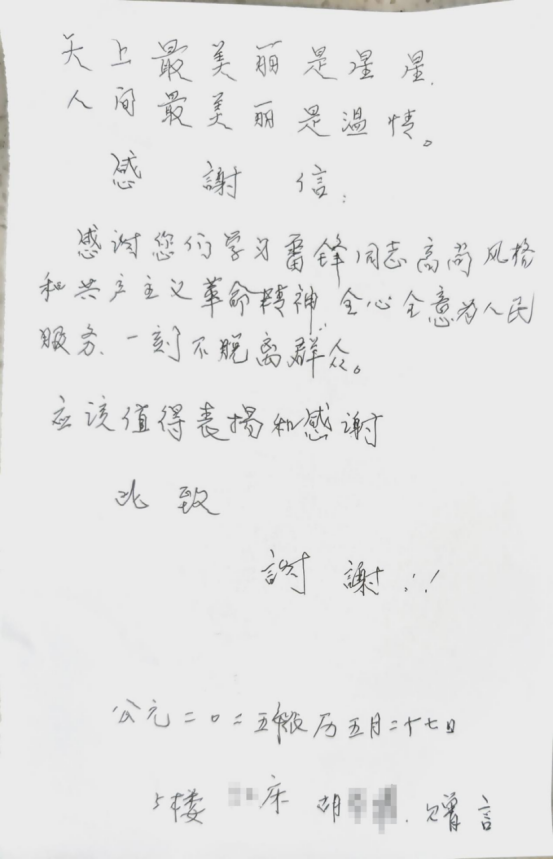 天上最美丽是星星.
人间最美丽是温情。
感謝信:
感谢您们学习雷锋同志高尚风格
和共产主义革命精神.全心全意为人民
服务、一刻不脱离群众。
应该值得表揚和感谢
此致
謝謝!!
公元二〇二五年农历五月二十七日
5楼 床 胡 .赠言